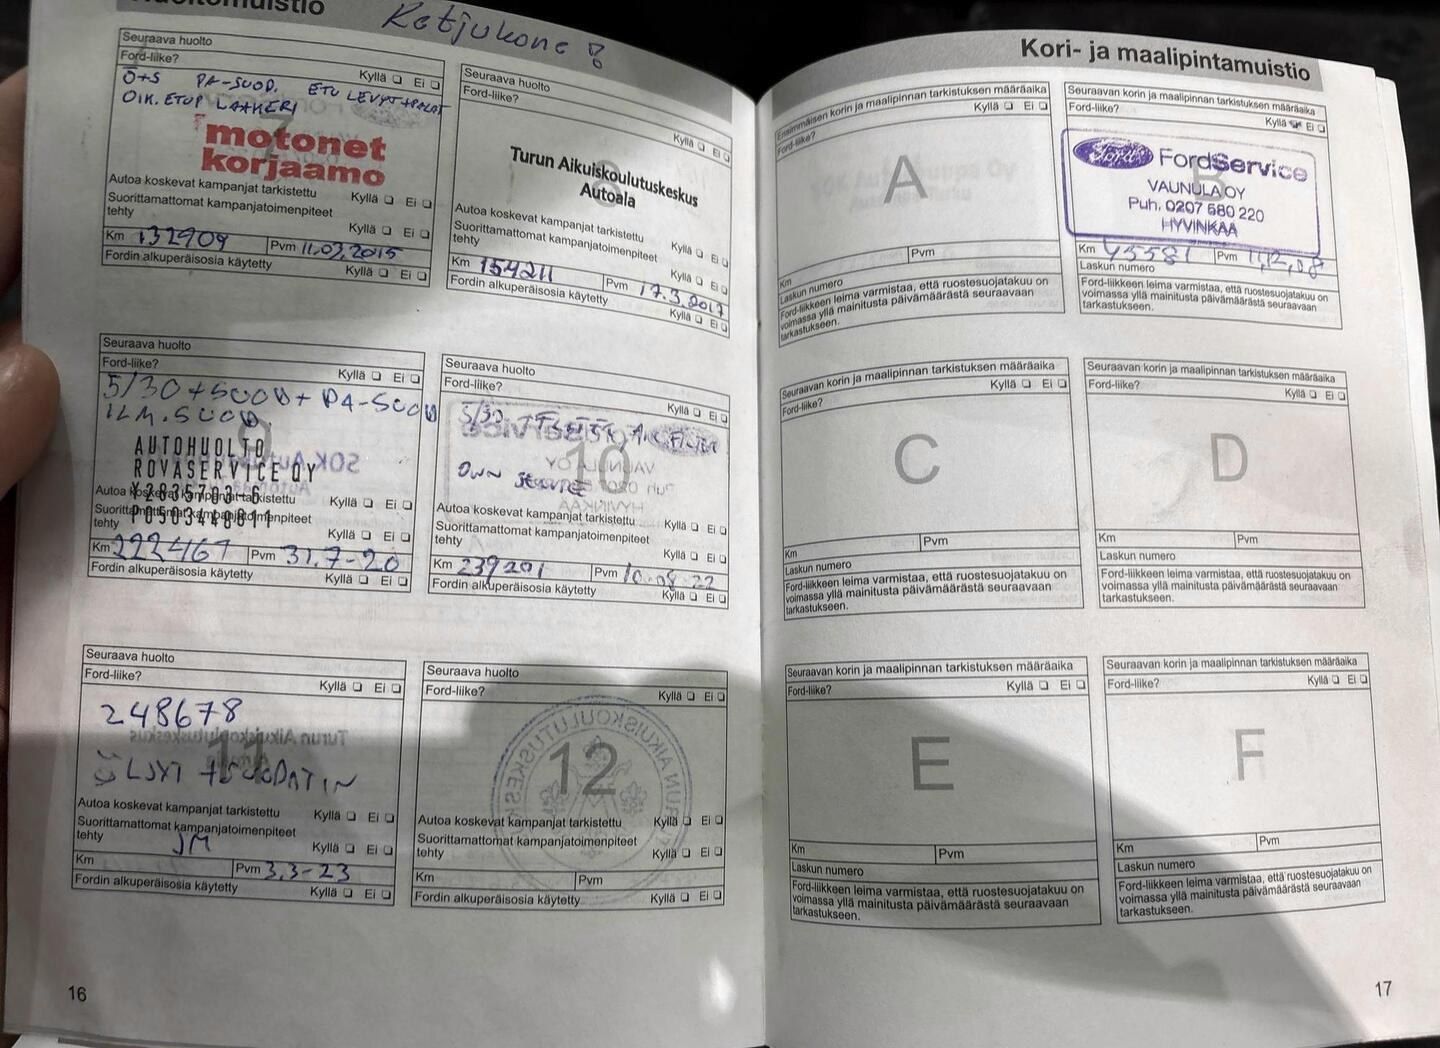 Huoltomuistio
Ketjukone!
Seuraava huolto
Ford-liike?
Kyllä ❏ Ei ❏
Ö+S PA-SUOD. ETU LEVYT+PALAT
OIK. ETUP. LAAKERI
7
motonet
korjaamo
Autoa koskevat kampanjat tarkistettu
Kyllä ❏ Ei ❏
Suorittamattomat kampanjatoimenpiteet
tehty
Kyllä ❏ Ei ❏
Km 132909 Pvm 11.03.2015
Fordin alkuperäisosia käytetty
Kyllä ❏ Ei ❏
Seuraava huolto
Ford-liike?
Kyllä ❏ Ei ❏
8
Turun Aikuiskoulutuskeskus
Autoala
Autoa koskevat kampanjat tarkistettu
Kyllä ❏ Ei ❏
Suorittamattomat kampanjatoimenpiteet
tehty
Kyllä ❏ Ei ❏
Km 154211 Pvm 17.3.2017
Fordin alkuperäisosia käytetty
Kyllä ❏ Ei ❏
Seuraava huolto
Ford-liike?
Kyllä ❏ Ei ❏
5/30+SUOD+PA-SUOD
ILM.SUOD.
9
AUTOHUOLTO
ROVASERVICE OY
Y2835703-6
P0503448811
Autoa koskevat kampanjat tarkistettu
Kyllä ❏ Ei ❏
Suorittamattomat kampanjatoimenpiteet
tehty
Kyllä ❏ Ei ❏
Km 222467 Pvm 31.7-20
Fordin alkuperäisosia käytetty
Kyllä ❏ Ei ❏
Seuraava huolto
Ford-liike?
Kyllä ❏ Ei ❏
5/30 + FILTER, AIR FILTER
10
OWN SERVICE
Autoa koskevat kampanjat tarkistettu
Kyllä ❏ Ei ❏
Suorittamattomat kampanjatoimenpiteet
tehty
Kyllä ❏ Ei ❏
Km 239201 Pvm 10.08.22
Fordin alkuperäisosia käytetty
Kyllä ❏ Ei ❏
Seuraava huolto
Ford-liike?
Kyllä ❏ Ei ❏
248678
11
ÖLJYT + SUODATIN
Autoa koskevat kampanjat tarkistettu
Kyllä ❏ Ei ❏
Suorittamattomat kampanjatoimenpiteet
tehty
JM
Kyllä ❏ Ei ❏
Km Pvm 3.3-23
Fordin alkuperäisosia käytetty
Kyllä ❏ Ei ❏
Seuraava huolto
Ford-liike?
Kyllä ❏ Ei ❏
12
Autoa koskevat kampanjat tarkistettu
Kyllä ❏ Ei ❏
Suorittamattomat kampanjatoimenpiteet
tehty
Kyllä ❏ Ei ❏
Km Pvm
Fordin alkuperäisosia käytetty
Kyllä ❏ Ei ❏
16
Kori- ja maalipintamuistio
Ensimmäisen korin ja maalipinnan tarkistuksen määräaika
Kyllä ❏ Ei ❏
Ford-liike?
A
Km Pvm
Laskun numero
Ford-liikkeen leima varmistaa, että ruostesuojatakuu on
voimassa yllä mainitusta päivämäärästä seuraavaan
tarkastukseen.
Seuraavan korin ja maalipinnan tarkistuksen määräaika
Ford-liike?
Kyllä ❏ Ei ❏
B
Ford FordService
VAUNULA OY
Puh. 0207 580 220
HYVINKÄÄ
Km 45581 Pvm 11.12.08
Laskun numero
Ford-liikkeen leima varmistaa, että ruostesuojatakuu on
voimassa yllä mainitusta päivämäärästä seuraavaan
tarkastukseen.
Seuraavan korin ja maalipinnan tarkistuksen määräaika
Ford-liike?
Kyllä ❏ Ei ❏
C
Km Pvm
Laskun numero
Ford-liikkeen leima varmistaa, että ruostesuojatakuu on
voimassa yllä mainitusta päivämäärästä seuraavaan
tarkastukseen.
Seuraavan korin ja maalipinnan tarkistuksen määräaika
Ford-liike?
Kyllä ❏ Ei ❏
D
Km Pvm
Laskun numero
Ford-liikkeen leima varmistaa, että ruostesuojatakuu on
voimassa yllä mainitusta päivämäärästä seuraavaan
tarkastukseen.
Seuraavan korin ja maalipinnan tarkistuksen määräaika
Ford-liike?
Kyllä ❏ Ei ❏
E
Km Pvm
Laskun numero
Ford-liikkeen leima varmistaa, että ruostesuojatakuu on
voimassa yllä mainitusta päivämäärästä seuraavaan
tarkastukseen.
Seuraavan korin ja maalipinnan tarkistuksen määräaika
Ford-liike?
Kyllä ❏ Ei ❏
F
Km Pvm
Laskun numero
Ford-liikkeen leima varmistaa, että ruostesuojatakuu on
voimassa yllä mainitusta päivämäärästä seuraavaan
tarkastukseen.
17